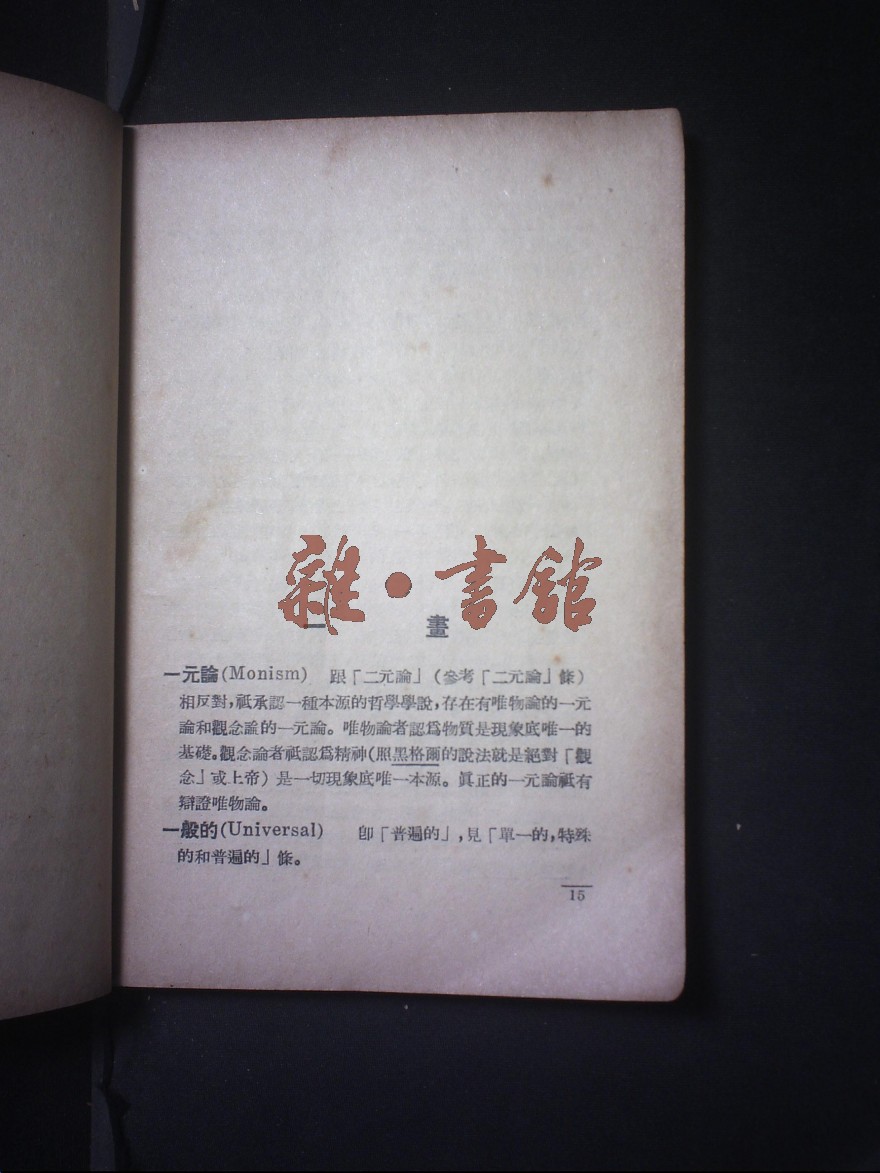 雜·書館
一 畫
一元論(Monism) 跟「二元論」(參考「二元論」條)
相反對,祇承認一種本源的哲學學說,存在有唯物論的一元
論和觀念論的一元論。唯物論者認爲物質是現象底唯一的
基礎。觀念論者祇認爲精神(照黑格爾的說法就是絕對「觀
念」或上帝)是一切現象底唯一本源。眞正的一元論祇有
辯證唯物論。
一般的(Universal) 卽「普遍的」,見「單一的,特殊
的和普遍的」條。
15